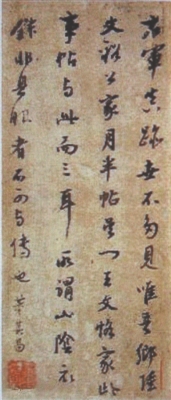 右軍真跡世不多見唯吾鄉陸
文裕公家月半帖吳門王文恪家此
事帖与此而三耳所謂山陰衣
鉢非具眼者不可与傳也 董其昌